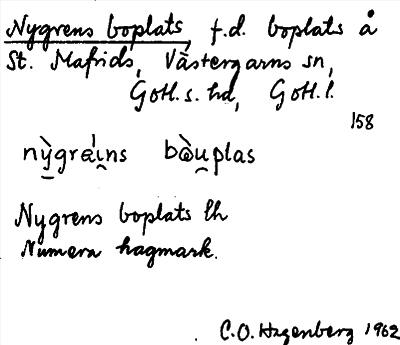 Nygrens boplats, f.d. boplats å
St. Mafrids, Västergarns sn,
Gotl.s. hd, Gotl.l.
158
nỳgräi̯ns bòu̯plas
Nygrens boplats lh
Numera hagmark.
C.O. Hagenberg 1962